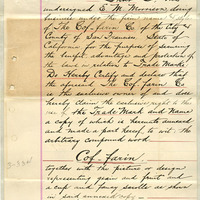 undersigned E. M. Morrison doing
business under the firm name & style
of The Cof-farin Co of the City &
County of San Francisco State of
California for the purpose of securing
the benefit, advantage and protection of
the law in relation to Trade Mark,
Do Hereby Certify and declare that
the aforesaid The Cof-farin Co
is the exclusive owner and does
hereby claim the exclusive right to the
use of the Trade Mark and Name
a copy of which is hereunto annexed
and made a part hereof, to wit: the
arbitrary compound work
Cof-farin.
together with the picture or design
representing grain and fruits and
a cup and fancy saucer as shown
in said annexed copy